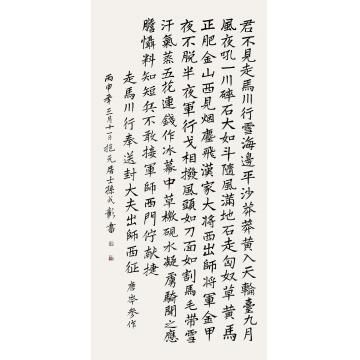 君不見走馬川行雪海邊平沙莽莽黃入天輪臺九月
風夜吼一川碎石大如斗隨風滿地石走匈奴草黃馬
正肥金山西見烟塵飛漢家大將西出師將軍金甲
夜不脫半夜軍行戈相撥風頭如刀面如割馬毛帶雪
汗氣蒸五花連錢作冰幕中草檄硯水凝虜騎聞之應
膽懾料知短兵不敢接軍師西門佇獻捷
走馬川行奉送封大夫出師西征 唐岑參作
丙申年三月十一日抱元居士孫成彰書